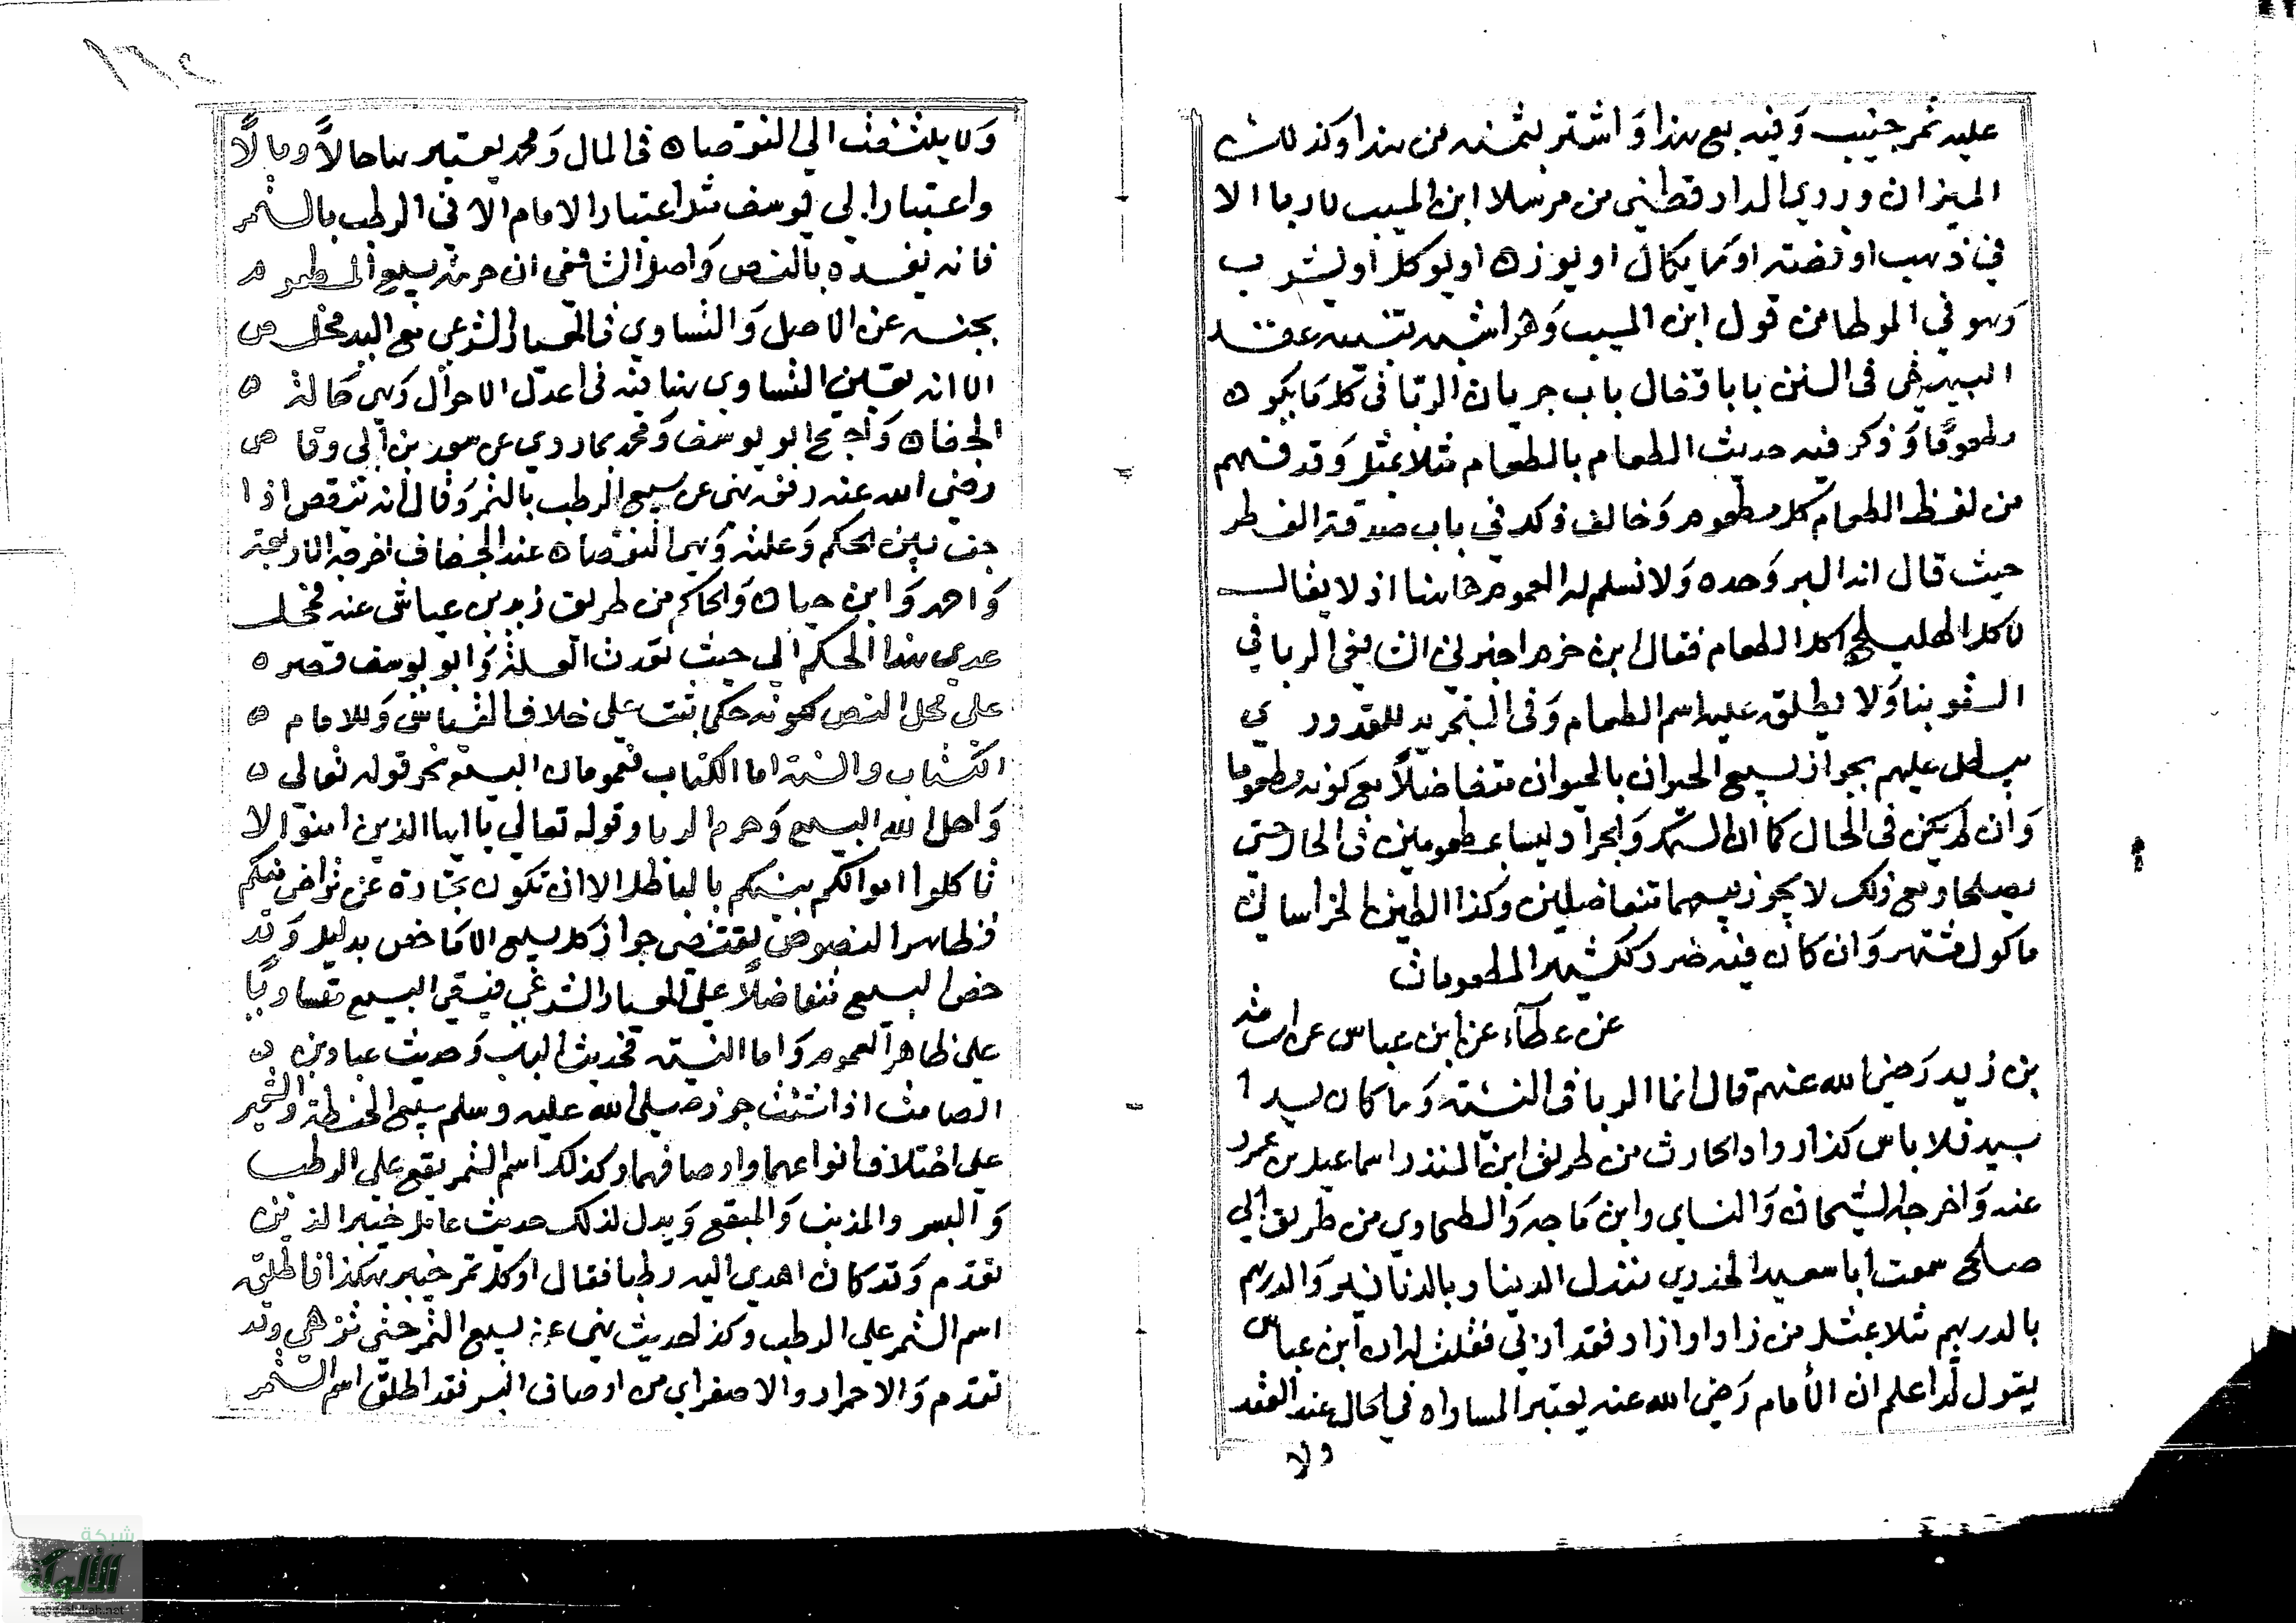 عليه تمر جنيب وفيه بع هذا واشتر بثمنه من هذا وكذلك
الميزان وروي الدارقطني من مرسل ابن المسيب لا ربا الا
في ذهب او فضة او مما يكال او يوزن او يوكل او يشرب
وهو في الموطا من قول ابن المسيب وهو اشبه عقد
البيهقي في السنن بابا فقال باب جريان الربا في كل ما يكون
مطعوما وذكر فيه حديث الطعام بالطعام مثلا بمثل وقد فهم
من لفظ الطعام كل مطعوم وخالف ذلك في باب صدقة الفطر
حيث قال انه البر وحده ولا نسلم له العموم هاهنا اذ لا يقال
لاكل الهليلج اكل الطعام فقال ابن حزم اخبرني الربا في
السقمونيا ولا يطلق عليه اسم الطعام وفي التجريد للقدوري
يبطل عليهم بجواز بيع الحيوان بالحيوان متفاضلا مع كونه مطعوما
وان لم يكن في الحال كما ان السمك والجراد ليسا بمطعومين في الحال حتى
يصلحا ومع ذلك لا يجوز بيعهما متفاضلين وكذا الطين الخراساني
ماكول مشتهر وان كان فيه ضرر ككثير المطعومات
عن عطاء عن ابن عباس عن اسامة
بن زيد رضي الله عنهم قال انما الربا في النسئة وما كان يدا
بيد فلا باس كذا رواه الحارث من طريق ابن المنذر اسماعيل بن عمر
عنه واخرجه الشيخان والنساي وابن ماجه والطحاوي من طريق ابي
صالح سمعت ابا سعيد الخدري الدينار بالدنانير والدرهم
بالدرهم مثلا بمثل من زاد او ازاد فقد اربى فقلت له ان ابن عباس
يقول اعلم ان الامام رضي الله عنه يعتبر المساواه في الحال عند العقد
ولا
ولا يلتفت الي النقصان في المال ومحمد يعتبرها حالا ومالا
واعتبار ابي يوسف مثل اعتبار الامام الا في الرطب بالتمر
فانه يفسده بالنص واصل الشافعي ان حرمة بيع المطعوم
بجنسه عن الاصل والتساوي في المعيار الشرعي مع اليد مخلص
الا انه يعتبر التساوي هنا منه في اعدل الاحوال وهي حالة
الجفاف واحتج ابو يوسف ومحمد بما روي عن سعد بن ابي وقاص
رضي الله عنه نهى عن بيع الرطب بالتمر وقال انه ينقص اذا
جف بين الحكم وعلته وهي النقصان عند الجفاف اخرجه الاربعة
واحمد وابن حبان والحاكم من طريق زيد بن عياش عنه فمحمد
عدي هذا الحكم الي حيث تعدت العلة وابو يوسف قصره
على محل النص لكونه حكما ثبت على خلاف القياس وللامام
الكتاب والسنة اما الكتاب فعمومات البيع نحو قوله تعالى
واحل الله البيع وحرم الربا وقوله تعالى يا ايها الذين امنوا لا
تاكلوا اموالكم بينكم بالباطل الا ان تكون تجارة عن تراض منكم
فظاهر النصوص يقتضي جواز كل بيع الا ما خص بدليل وقد
خص البيع متفاضلا على المعيار الشرعي فبقي البيع متساويا
على ظاهر العموم واما السنة فحديث الباب وحديث عبادة بن
الصامت اذا ثبتت جوز صلى الله عليه وسلم بيع الحنطة والشعير
على اختلاف انواعهما واوصافهما وكذلك اسم التمر يقع على الرطب
والبسر والمذنب والمبقع ويدل لذلك حديث عامل خيبر الذي
تقدم وقد كان اهدي اليه رطبا فقال اوكل تمر خيبر هكذا فاطلق
اسم التمر على الرطب وكذا حديث نهى عن بيع التمر حتى تزهي وقد
تقدم والاحمرار والاصفرار من اوصاف البسر فقد اطلق اسم التمر
شبكة
الألوكة